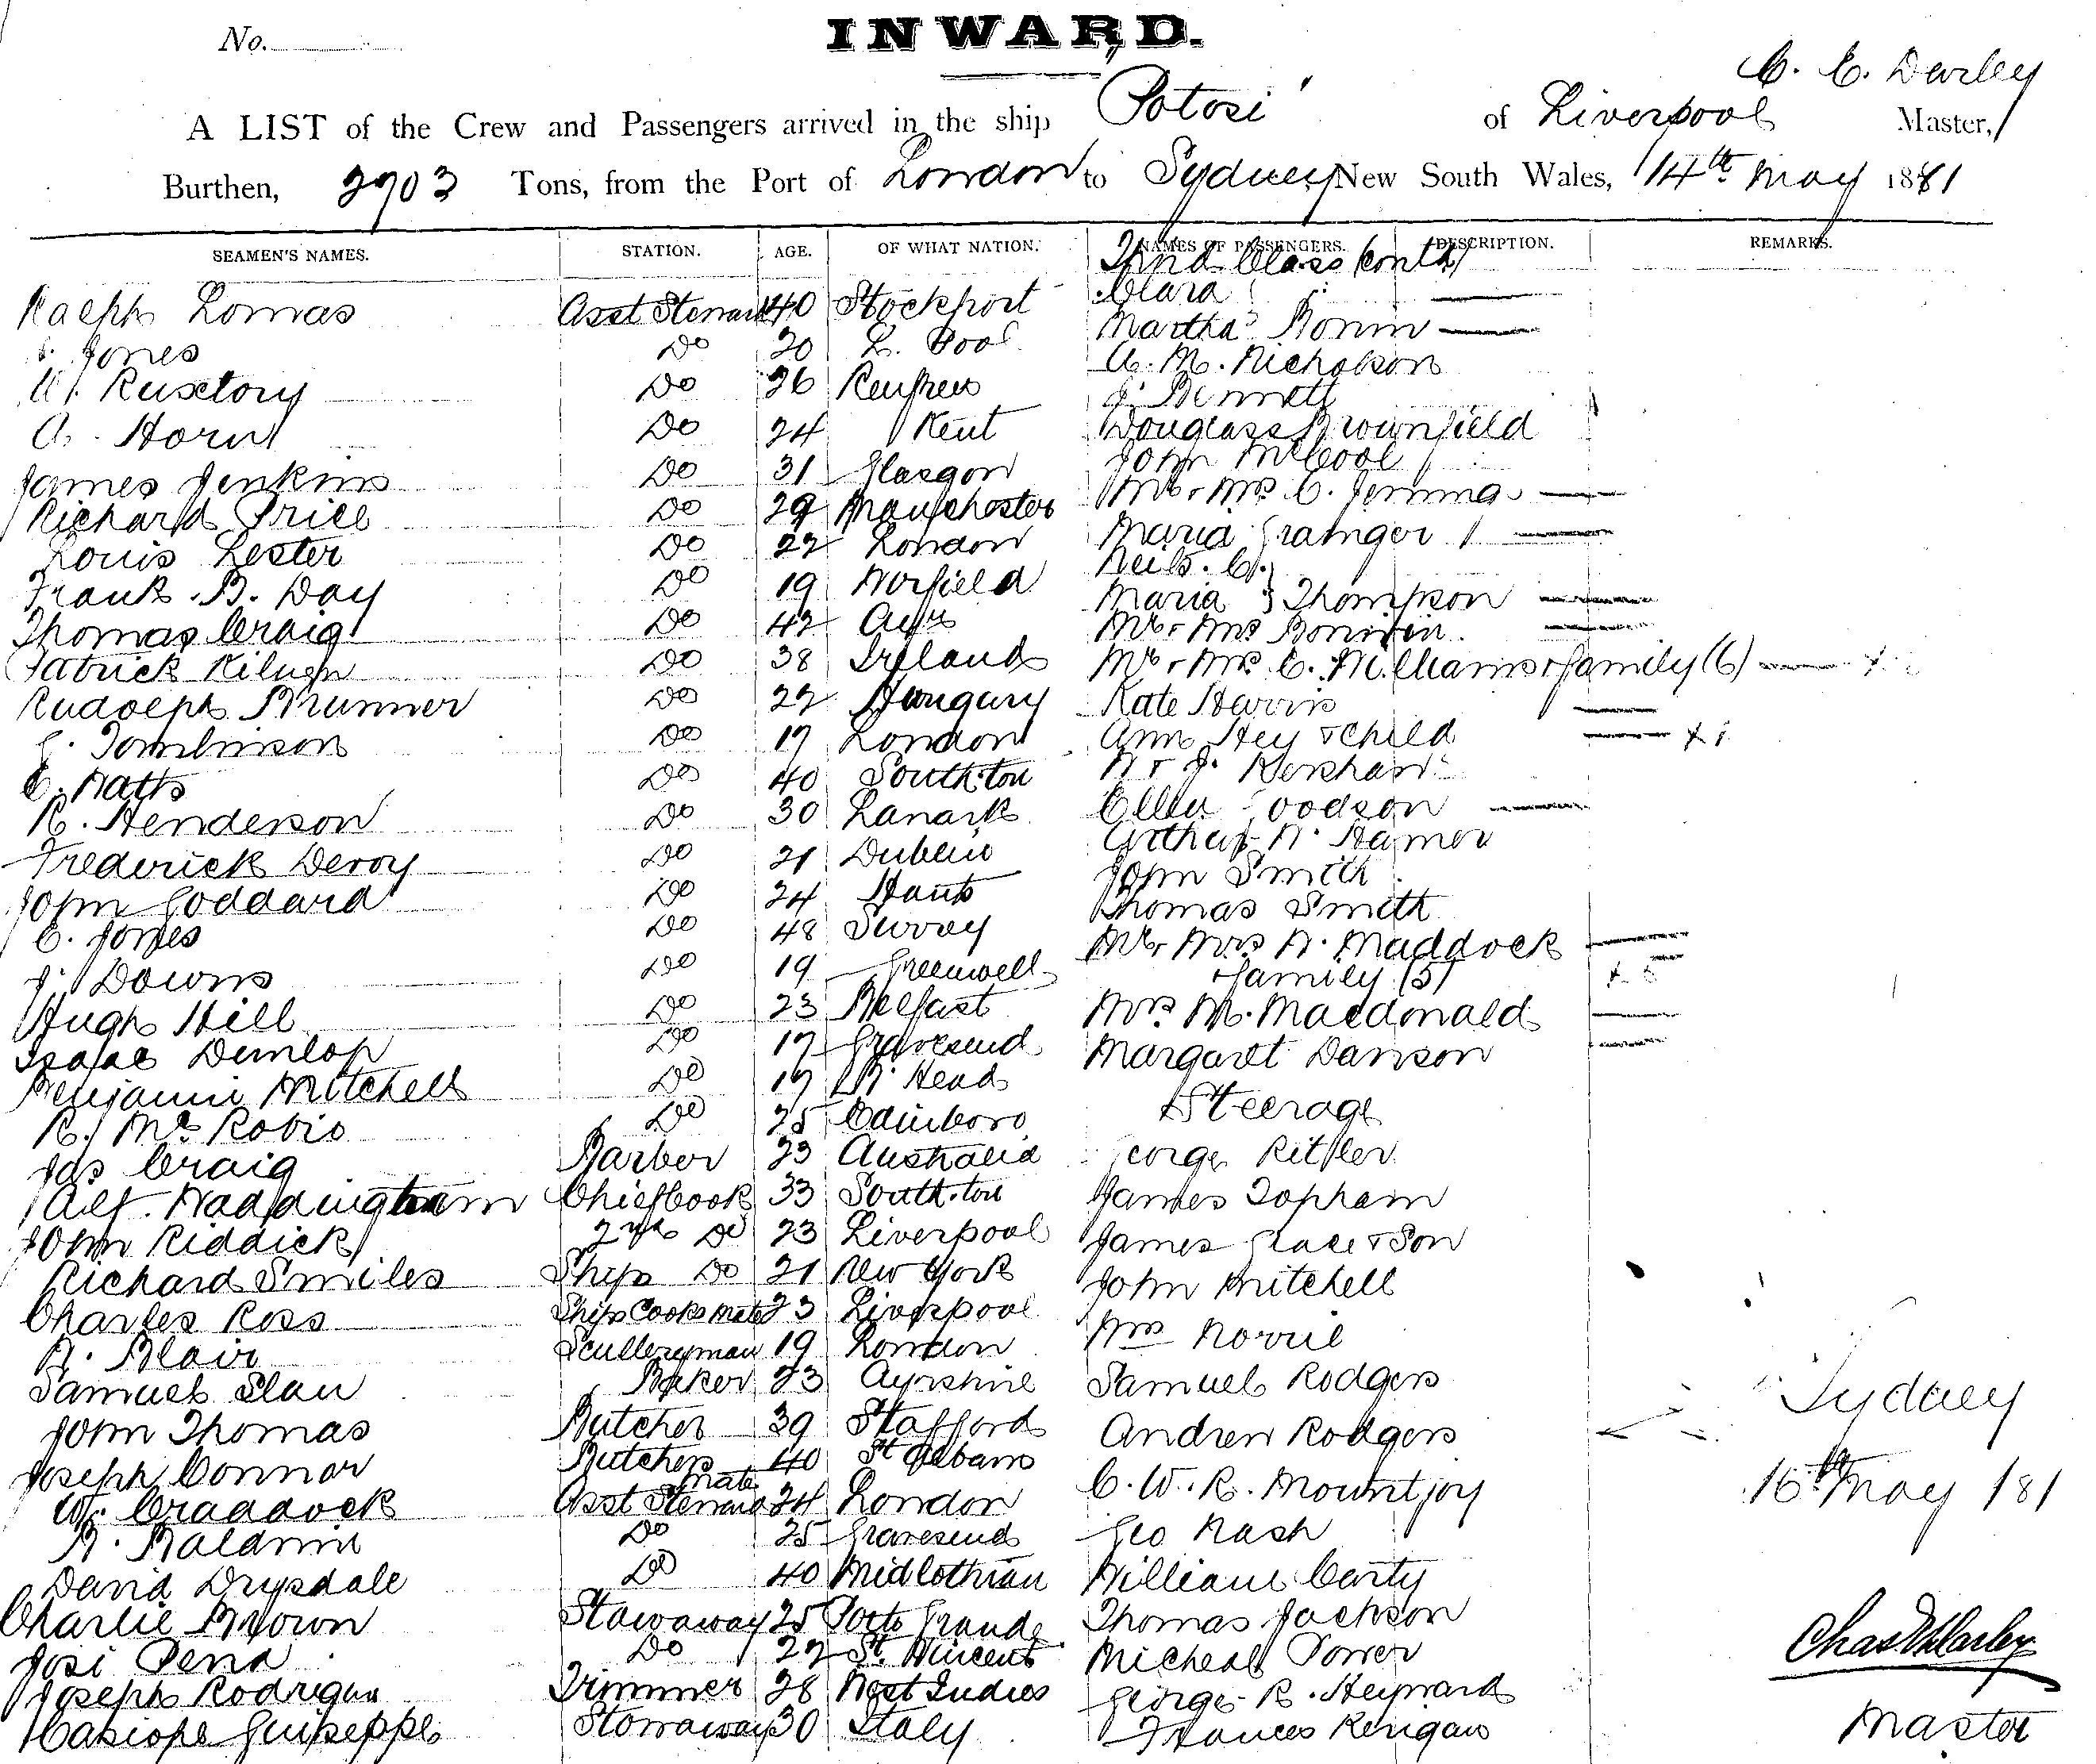 No.
INWARD.
C. E. Darley
A LIST of the Crew and Passengers arrived in the ship "Potosi" of Liverpool Master,
Burthen, 2703 Tons, from the Port of London to Sydney New South Wales, 14th May 1881
SEAMEN'S NAMES. STATION. AGE. OF WHAT NATION. NAMES OF PASSENGERS. DESCRIPTION. REMARKS.
Third Class Contd
Ralph Lomas Asst Steward 40 Stockport Clara
Jones Do 20 L. Pool Martha Bonin
W. Do 26 Renfrew A. M. Nicholson
A. Horn Do 24 Kent J. Bennett
Douglass Brownfield
James Jenkins Do 31 Glasgow John McCool
Richard Price Do 29 Manchester Mr & Mrs C. Jemma
Louis Lester Do 22 London Maria Grainger
Frank B. Day Do 19 Norfield Neils. C. }
Maria } Thompson
Thomas Craig Do 42 Ayr Mr & Mrs
Patrick Do 38 Ireland Mr & Mrs C. Williams & family (6)
Rudolph Brunner Do 22 Hungary Kate Harris
Tomlinson Do 17 London Ann Hey & Child
C. Watts Do 40 Southton W & J. Kershaw
R. Henderson Do 30 Lanark Ellen
Frederick Deroy Do 21 Dublin Arthur W. Hamer
John Goddard Do 24 Hants John Smith
C. Jones Do 48 Surrey Thomas Smith
J. Downs Do 19 Greenwell Mr & Mrs W. Maddock
& family (5)
Hugh Hill Do 23 Belfast Mrs M. Macdonald
Isaac Dunlop Do 17 Gravesend Margaret Dawson
Benjamin Mitchell Do 17 B. Head
R. Mc Robie Do 25 Steerage
Jas Craig Barber 23 Australia George Rittler
Alf. Waddingham Chief Cook 33 Southton James Topham
John Riddick 2nd Do 23 Liverpool James Grace & Son
Richard Smiles Ships Do 21 New York John Mitchell
Charles Ross Ships Cooks Mate 23 Liverpool Mrs Norrie
W. Blair Scullery man 19 London
Samuel Slau Baker 23 Ayrshire Samuel Rodgers
Sydney
John Thomas Butcher 39 Stafford Andrew Rodgers
Joseph Connor Butchers mate 40 St Albans
16th May /81
W. Craddock Asst Steward 24 London C. W. R. Mountjoy
W. Baldwin Do 25 Gravesend Geo Nash
David Drysdale Do 40 Midlothian William Carty
Charlie Brown Stowaway 25 Porto Grande Thomas Jackson
Josi Pena Do 22 St. Vincent Micheal Power
Chas E Darley
Joseph Rodrigue Trimmer 28 West Indies George R. Heyward
Casiope Guiseppe Stowaway 30 Italy Frances Kerigan
Master